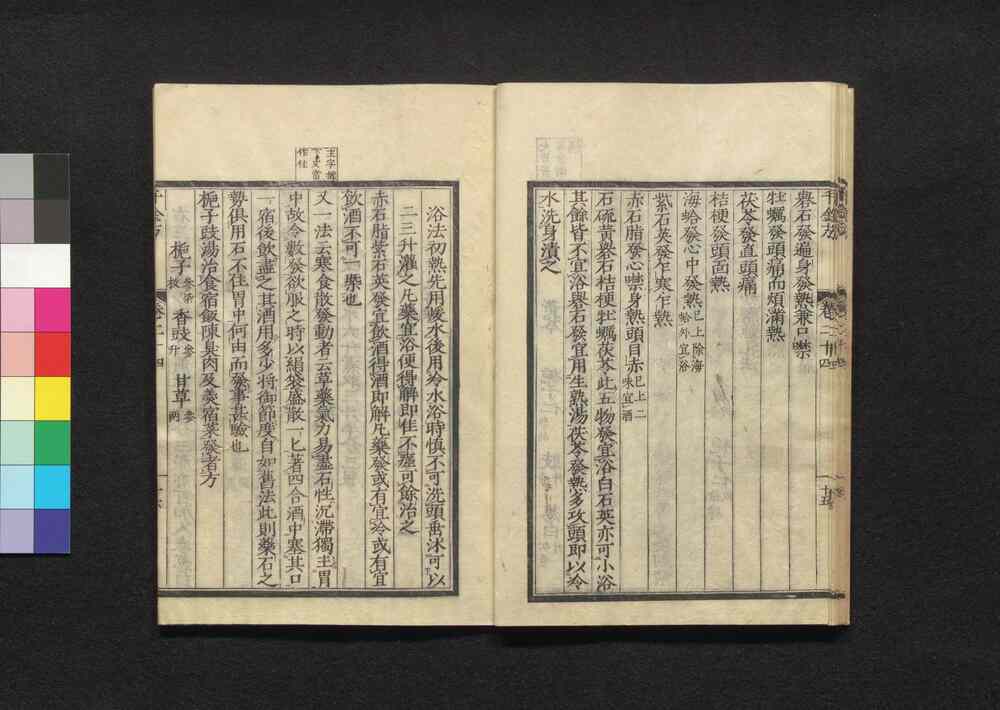 千金方 卷二十四 十五
礜石發遍身發熱兼口噤
牡蠣發頭痛而煩滿熱
茯苓發直頭痛
桔梗發頭面熱
海蛤發心中發熱 已上除海蛤外宜浴
紫石英發乍寒乍熱
赤石脂發心噤身熱頭目赤 已上二味宜酒
石硫黃礜石桔梗牡蠣茯苓此五物發宜浴白石英亦可小浴
其餘皆不宜浴礜石發宜用生熟湯茯苓發熱多攻頭即以冷
水洗身漬之
浴法初熱先用暖水後用冷水浴時慎不可洗頭垂沐可以
二三升灌之凡藥宜浴便得解即佳不瘥可餘治之
赤石脂紫石英發宜飲酒得酒即解凡藥發或有宜冷或有宜
飲酒不可一槩也
又一法云寒食散發動者云草藥氣力易盡石性沉滯獨主胃
主字據下文當作住
中故令數發欲服之時以絹袋盛散一匕著四合酒中塞其口
一宿後飲盡之其酒用多少將御節度自如舊法此則藥石之
勢俱用石不住胃中何由而發事甚驗也
梔子豉湯治食宿飯陳臭肉及羹宿菜發者方
梔子 參柒枚 香豉 參升 甘草 參兩
千金方 卷二十四 十六